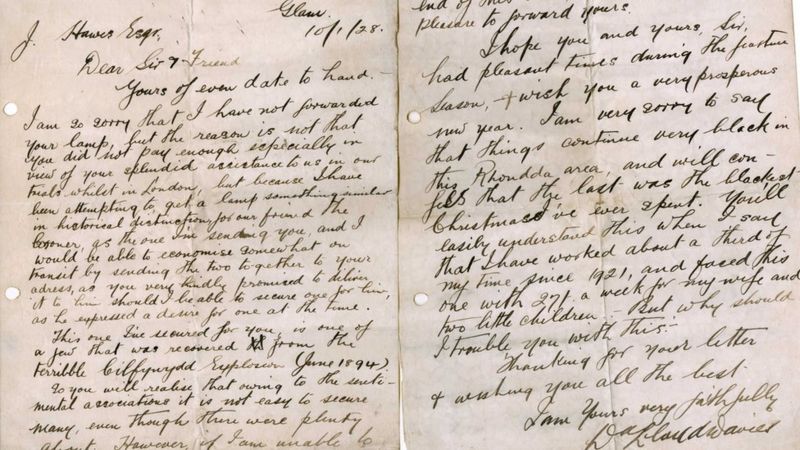 Glam.
10/1/28.
J. Hawes Esqr,
Dear Sir & Friend
Yours of even date to hand. -
I am so sorry that I have not forwarded
your lamp, but the reason is not that
you did not pay enough especially in
view of your splendid assistance to us in our
trials whilst in London, but because I have
been attempting to get a lamp something similar
in historical distinction, for our friend the
, as the one I'm sending you, and I
would be able to economise somewhat on
transit by sending the two together to your
adress, as you very kindly promised to deliver
it to him should I be able to secure one for him,
as he expressed a desire for one at the time.
This one I've secured for you, is one of
a few that was recovered from the
terrible Cilfynydd Explosion (June 1894)
So you will realise that owing to the senti-
mental associations it is not easy to secure
many, even though there were plenty
about. However, if I am unable to
end of this
pleasure to forward yours.
I hope you and yours, Sir,
had pleasant times during the festive
Season, & wish you a very prosperous
new year. I am very sorry to say
that things continue very black in
this Rhondda area, and will con-
fess that the last was the blackest
Christmas I've ever spent. You'll
easily understand this when I say
that I have worked about a third of
my time since 1921, and faced this
one with 27/- a week for my wife and
two little children. - But why should
I trouble you with this. -
Thanking for your letter
& wishing you all the best
I am Yours very faithfully
D Lloyd Davies